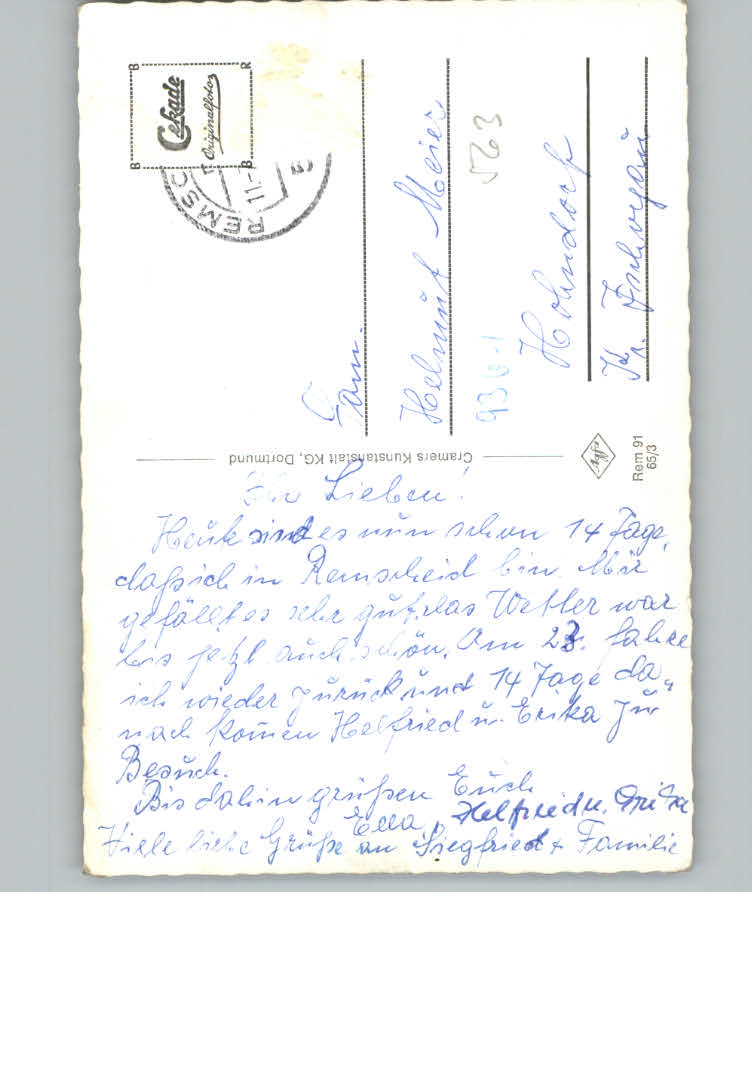 Ihr Lieben!
Heute sind es nun schon 14 Tage,
daß ich in Remscheid bin. Mir
gefällt es sehr gut, das Wetter war
bis jetzt auch schön. Am 23. fahre
ich wieder zurück und 14 Tage da„
nach komen Helfried u. Erika zu
Besuch.
Bis dahin grüßen Euch
Ella, Helfried u. Erika
Viele liebe Grüße an Siegfried + Familie
Cramers Kunstanstalt KG, Dortmund
B R
Cekade
Originalfoto
B B
REMSC
11.
Fam.
Helmut Meier
563
936-1
Hohndorf
Kr. Zschopau
Agfa
Rem 91
65/3